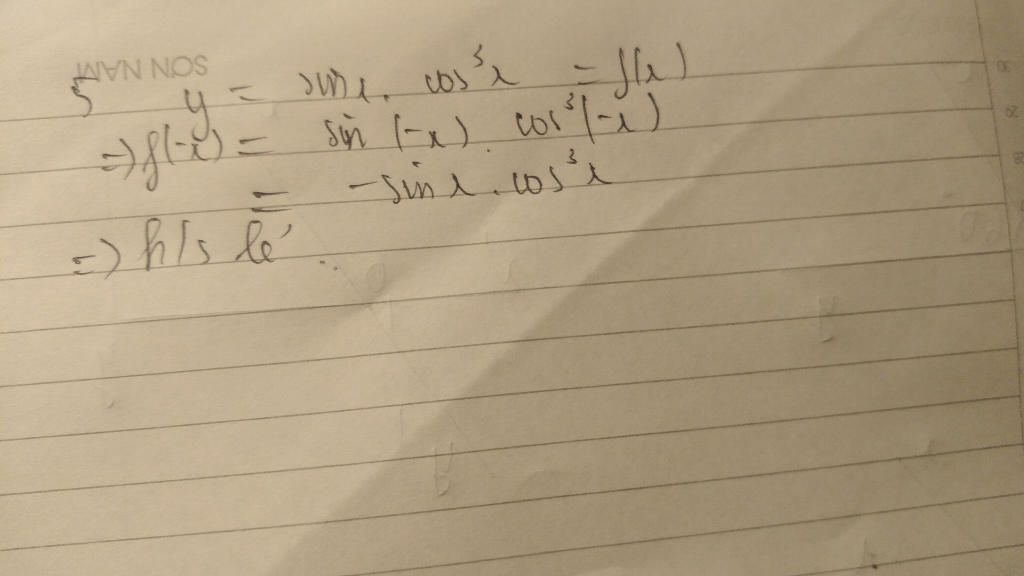 SON NAM
5 y = sinx. cos³x = f(x)
=> f(-x) = sin (-x). cos³(-x)
= -sinx.cos³x
=> h/s lẻ.